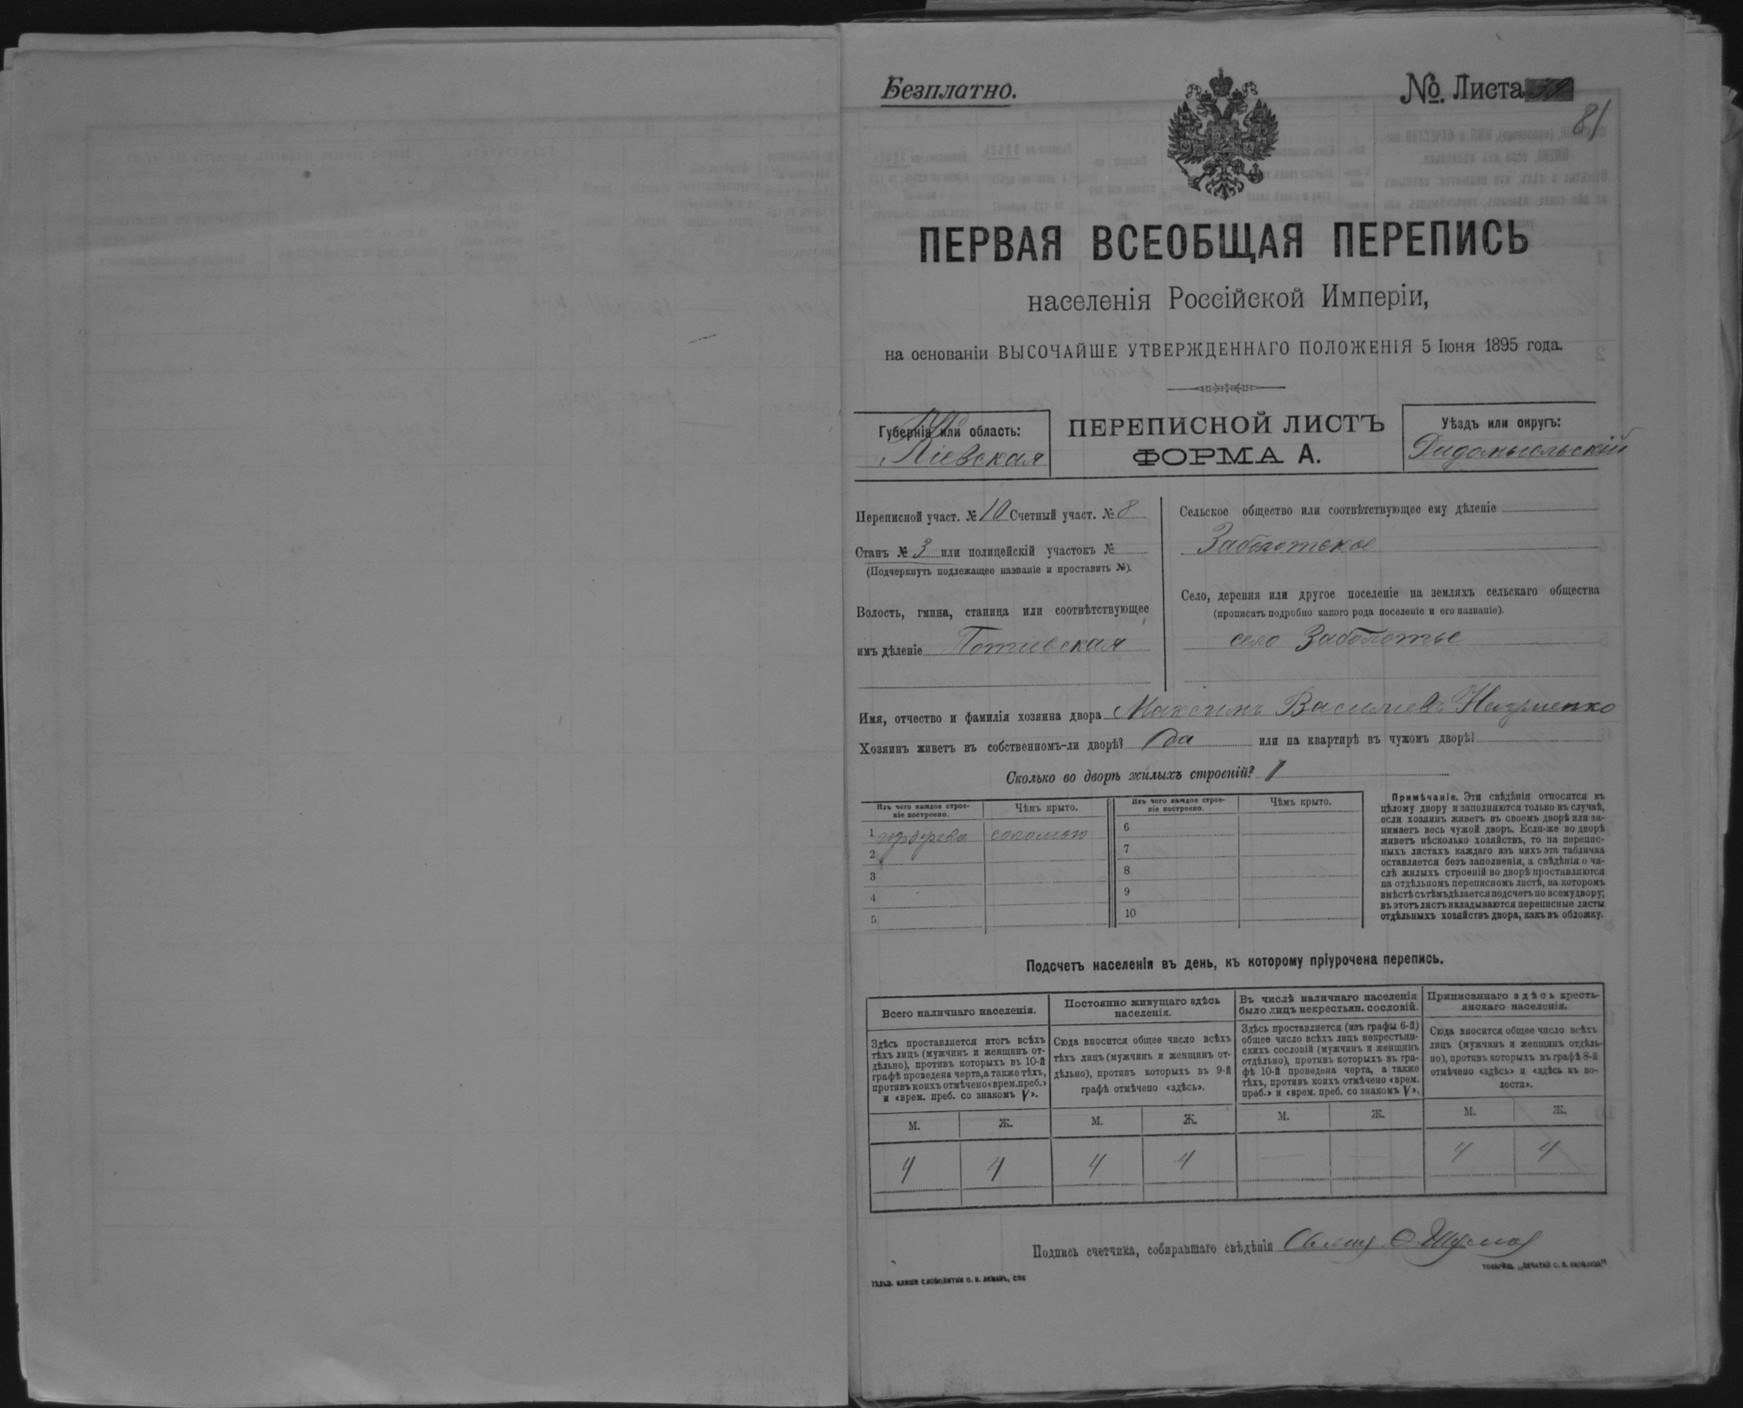 Безплатно.
№. Листа
81
ПЕРВАЯ ВСЕОБЩАЯ ПЕРЕПИСЬ
населенія Россійской Имперіи,
на основаніи ВЫСОЧАЙШЕ УТВЕРЖДЕННАГО ПОЛОЖЕНІЯ 5 Іюня 1895 года.
Губернія или область:
Кіевская
ПЕРЕПИСНОЙ ЛИСТЪ
ФОРМА А.
Уѣздъ или округъ:
Радомысльскій
Переписной участ. № 10 Счетный участ. № 8
Станъ № 3 или полицейскій участокъ №
(Подчеркнуть подлежащее названіе и проставить №).
Волость, гмина, станица или соотвѣтствующее
имъ дѣленіе Потіевская
Сельское общество или соотвѣтствующее ему дѣленіе
Заболотское
Село, деревня или другое поселеніе на земляхъ сельскаго общества
(прописать подробно какого рода поселеніе и его названіе).
село Заболотье
Имя, отчество и фамилія хозяина двора Максимъ Василіевъ
Хозяинъ живетъ въ собственномъ-ли дворѣ? Да или на квартирѣ въ чужомъ дворѣ?
Сколько во дворѣ жилыхъ строеній? 1
Изъ чего каждое строе-
ніе построено.
Чѣмъ крыто.
Изъ чего каждое строе-
ніе построено.
Чѣмъ крыто.
1 изъ дерева соломою
2
3
4
5
6
7
8
9
10
Примѣчаніе. Эти свѣдѣнія относятся къ
цѣлому двору и заполняются только въ случаѣ,
если хозяинъ живетъ въ своемъ дворѣ или за-
нимаетъ весь чужой дворъ. Если-же во дворѣ
живетъ нѣсколько хозяйствъ, то на перепис-
ныхъ листахъ каждаго изъ нихъ эта табличка
оставляется безъ заполненія, а свѣдѣнія о чи-
слѣ жилыхъ строеній во дворѣ проставляются
на отдѣльномъ переписномъ листѣ, на которомъ
вмѣстѣ съ тѣмъ дѣлается подсчетъ по всему двору;
въ этотъ листъ вкладываются переписные листы
отдѣльныхъ хозяйствъ двора, какъ въ обложку.
Подсчетъ населенія въ день, къ которому пріурочена перепись.
Всего наличнаго населенія.
Здѣсь проставляется итогъ всѣхъ
тѣхъ лицъ (мужчинъ и женщинъ от-
дѣльно), противъ которыхъ въ 10-й
графѣ проведена черта, а также тѣхъ,
противъ коихъ отмѣчено «врем. преб.»
и «врем. преб. со знакомъ V».
Постоянно живущаго здѣсь
населенія.
Сюда вносится общее число всѣхъ
тѣхъ лицъ (мужчинъ и женщинъ от-
дѣльно), противъ которыхъ въ 9-й
графѣ отмѣчено «здѣсь».
Въ числѣ наличнаго населенія
было лицъ некрестьян. сословій.
Здѣсь проставляется (изъ графы 6-й)
общее число всѣхъ лицъ некрестьян-
скихъ сословій (мужчинъ и женщинъ
отдѣльно), противъ которыхъ въ гра-
фѣ 10-й проведена черта, а также
тѣхъ, противъ коихъ отмѣчено «врем.
преб.» и «врем. преб. со знакомъ V».
Приписаннаго здѣсь кресть-
янскаго населенія.
Сюда вносится общее число всѣхъ
лицъ (мужчинъ и женщинъ отдѣль-
но), противъ которыхъ въ графѣ 8-й
отмѣчено «здѣсь» и «здѣсь въ во-
лости».
М. Ж. М. Ж. М. Ж. М. Ж.
4 4 4 4 4 4
Подпись счетчика, собиравшаго свѣдѣнія